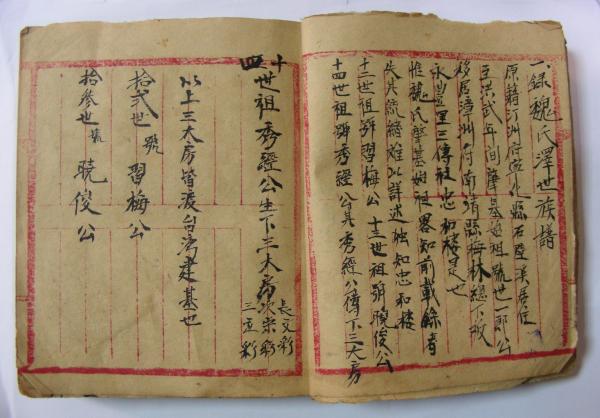 一錄魏氏澤世族譜
原籍汀州府寧化縣石壁溪居住
至洪武年間肇基始祖號世一郎公
移居漳州府南靖縣梅林總下版
永豐里三傳祖忠和樓是也
惟魏氏肇基始祖畧知前載錄者
失其統緒難以詳述独知忠和樓
十二世祖號習梅公 十三世祖號曉俊公
十四世祖號秀經公其秀經公傳下三大房
十四世祖秀經公生下三大房 長文彩 次宗彩 三 彩
以上三大房皆渡台湾建基也
拾弍世 號 習梅公
拾叁世 號 曉俊公